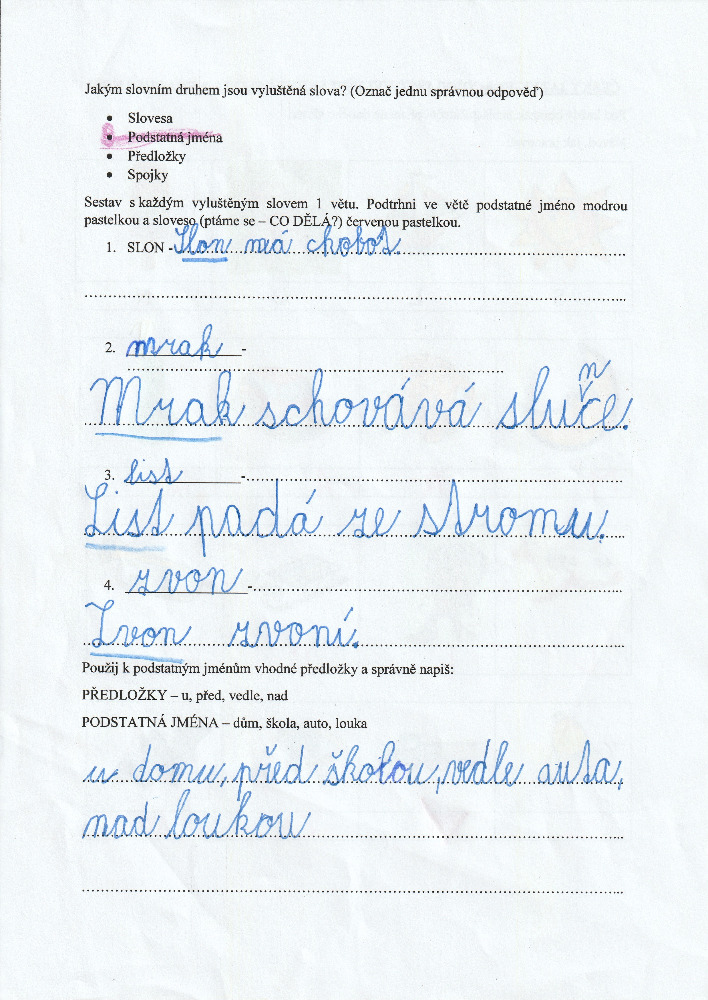 Jakým slovním druhem jsou vyluštěná slova? (Označ jednu správnou odpověď)
• Slovesa
• Podstatná jména
• Předložky
• Spojky
Sestav s každým vyluštěným slovem 1 větu. Podtrhni ve větě podstatné jméno modrou
pastelkou a sloveso (ptáme se – CO DĚLÁ?) červenou pastelkou.
1. SLON - Slon má chobot.
2. mrak -
Mrak schovává sluňce.
3. list -
List padá ze stromu.
4. zvon -
Zvon zvoní.
Použij k podstatným jménům vhodné předložky a správně napiš:
PŘEDLOŽKY – u, před, vedle, nad
PODSTATNÁ JMÉNA – dům, škola, auto, louka
u domu, před školou, vedle auta,
nad loukou